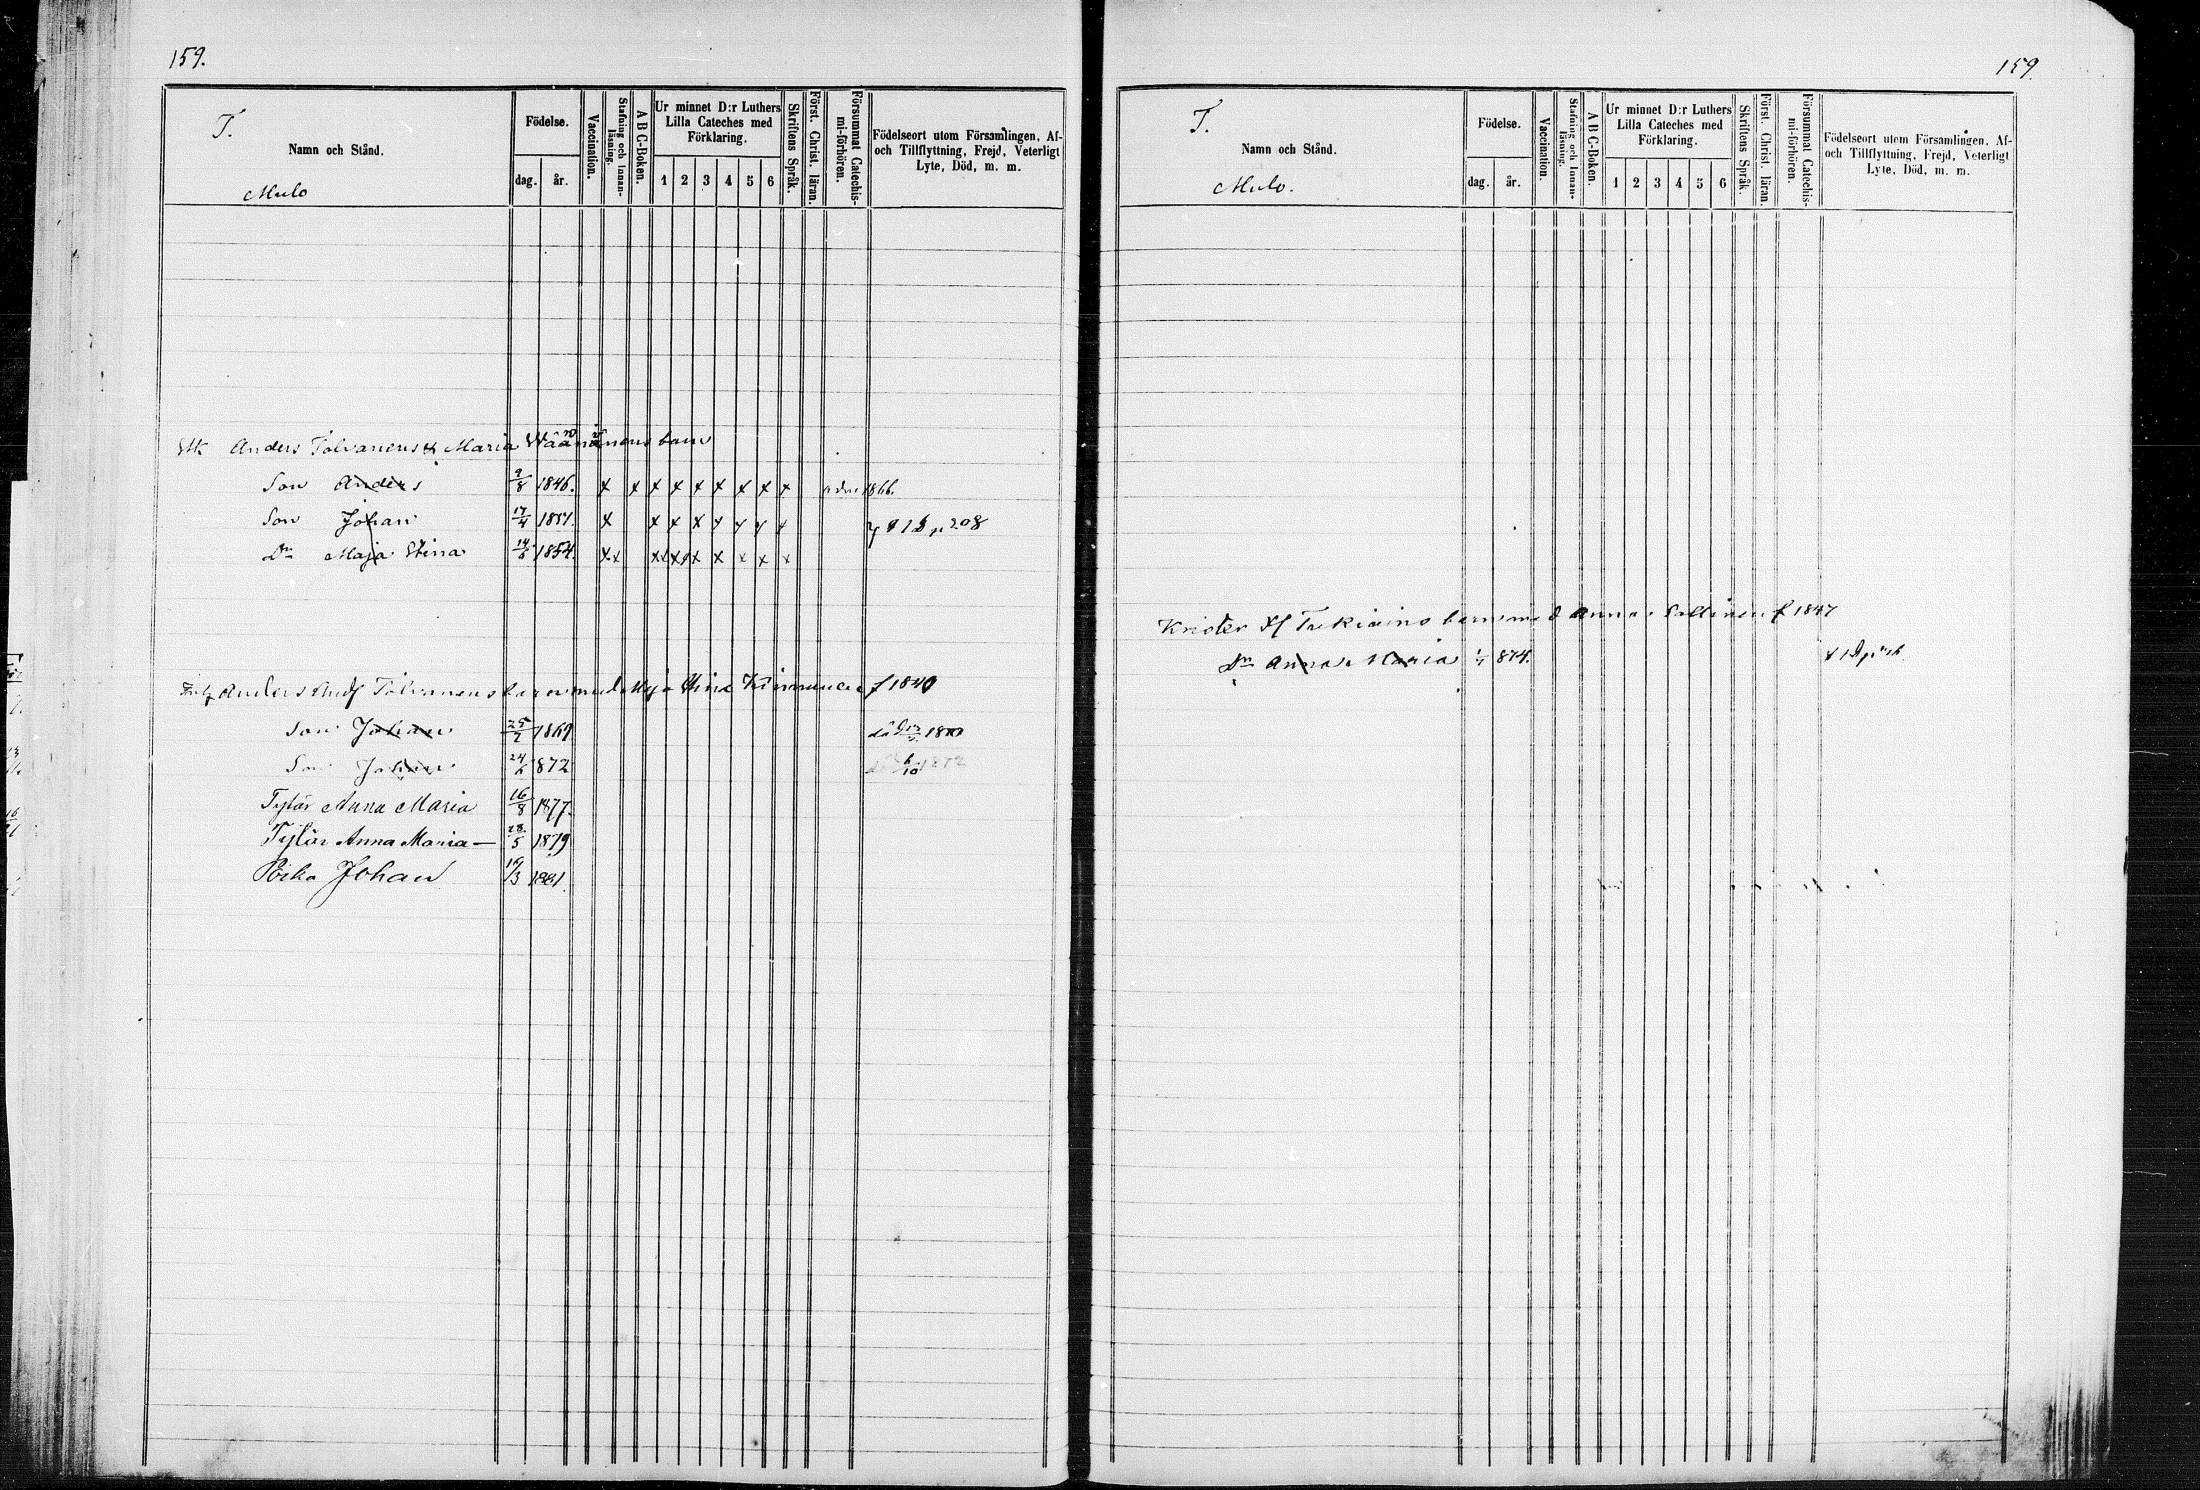 159.
T.
Namn och Stånd.
Mulo
Födelse.
dag. år.
Vaccination.
Stafning och Innan-
läsning.
A B C-Boken.
Ur minnet D:r Luthers
Lilla Cateches med
Förklaring.
1 2 3 4 5 6
Skriftens Språk.
Först. Christ. läran.
Försummat Catechis-
mi-förhören.
Födelseort utom Församlingen, Af-
och Tillflyttning, Frejd, Veterligt
Lyte, Död, m. m.
Anders Tolvanens & Maria Wäänänens barn
Son Anders 9/8 1846. x x x x x x x x x 1866.
Son Johan 17/4 1851. x x x x y y y x p 208
Dr Maja Stina 14/6 1854. xx xx xx x x x x x
Anders And Tolvanens barn med Maja Stina Kinnunen f 1840
Son Johan 25/2 1869 1870
Son Johan 24/6 872 6/10 1872
Tytär Anna Maria 16/8 1877.
Tytär Anna Maria — 28/5 1879
Poika Johan 16/3 1881.
159.
T.
Namn och Stånd.
Mulo.
Födelse.
dag. år.
Vaccination.
Stafning och Innan-
läsning.
A B C-Boken.
Ur minnet D:r Luthers
Lilla Cateches med
Förklaring.
1 2 3 4 5 6
Skriftens Språk.
Först. Christ. läran.
Försummat Catechis-
mi-förhören.
Födelseort utom Församlingen, Af-
och Tillflyttning, Frejd, Veterligt
Lyte, Död, m. m.
Krister barn med Anna f 1847
Dr Anna Maria 874.